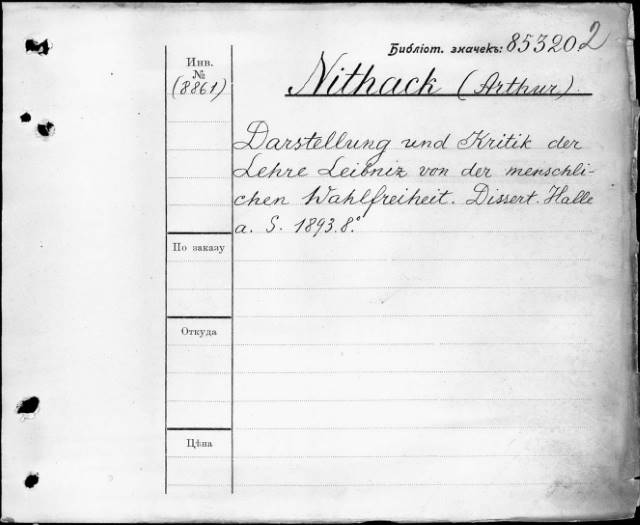 Библіот. значекъ: 85320 2
Инв.
№
(8861)
Nithack (Arthur).
Darstellung und Kritik der
Lehre Leibniz von der menschli-
chen Wahlfreiheit. Dissert. Halle
a. S. 1893. 8.°
По заказу
Откуда
Цѣна